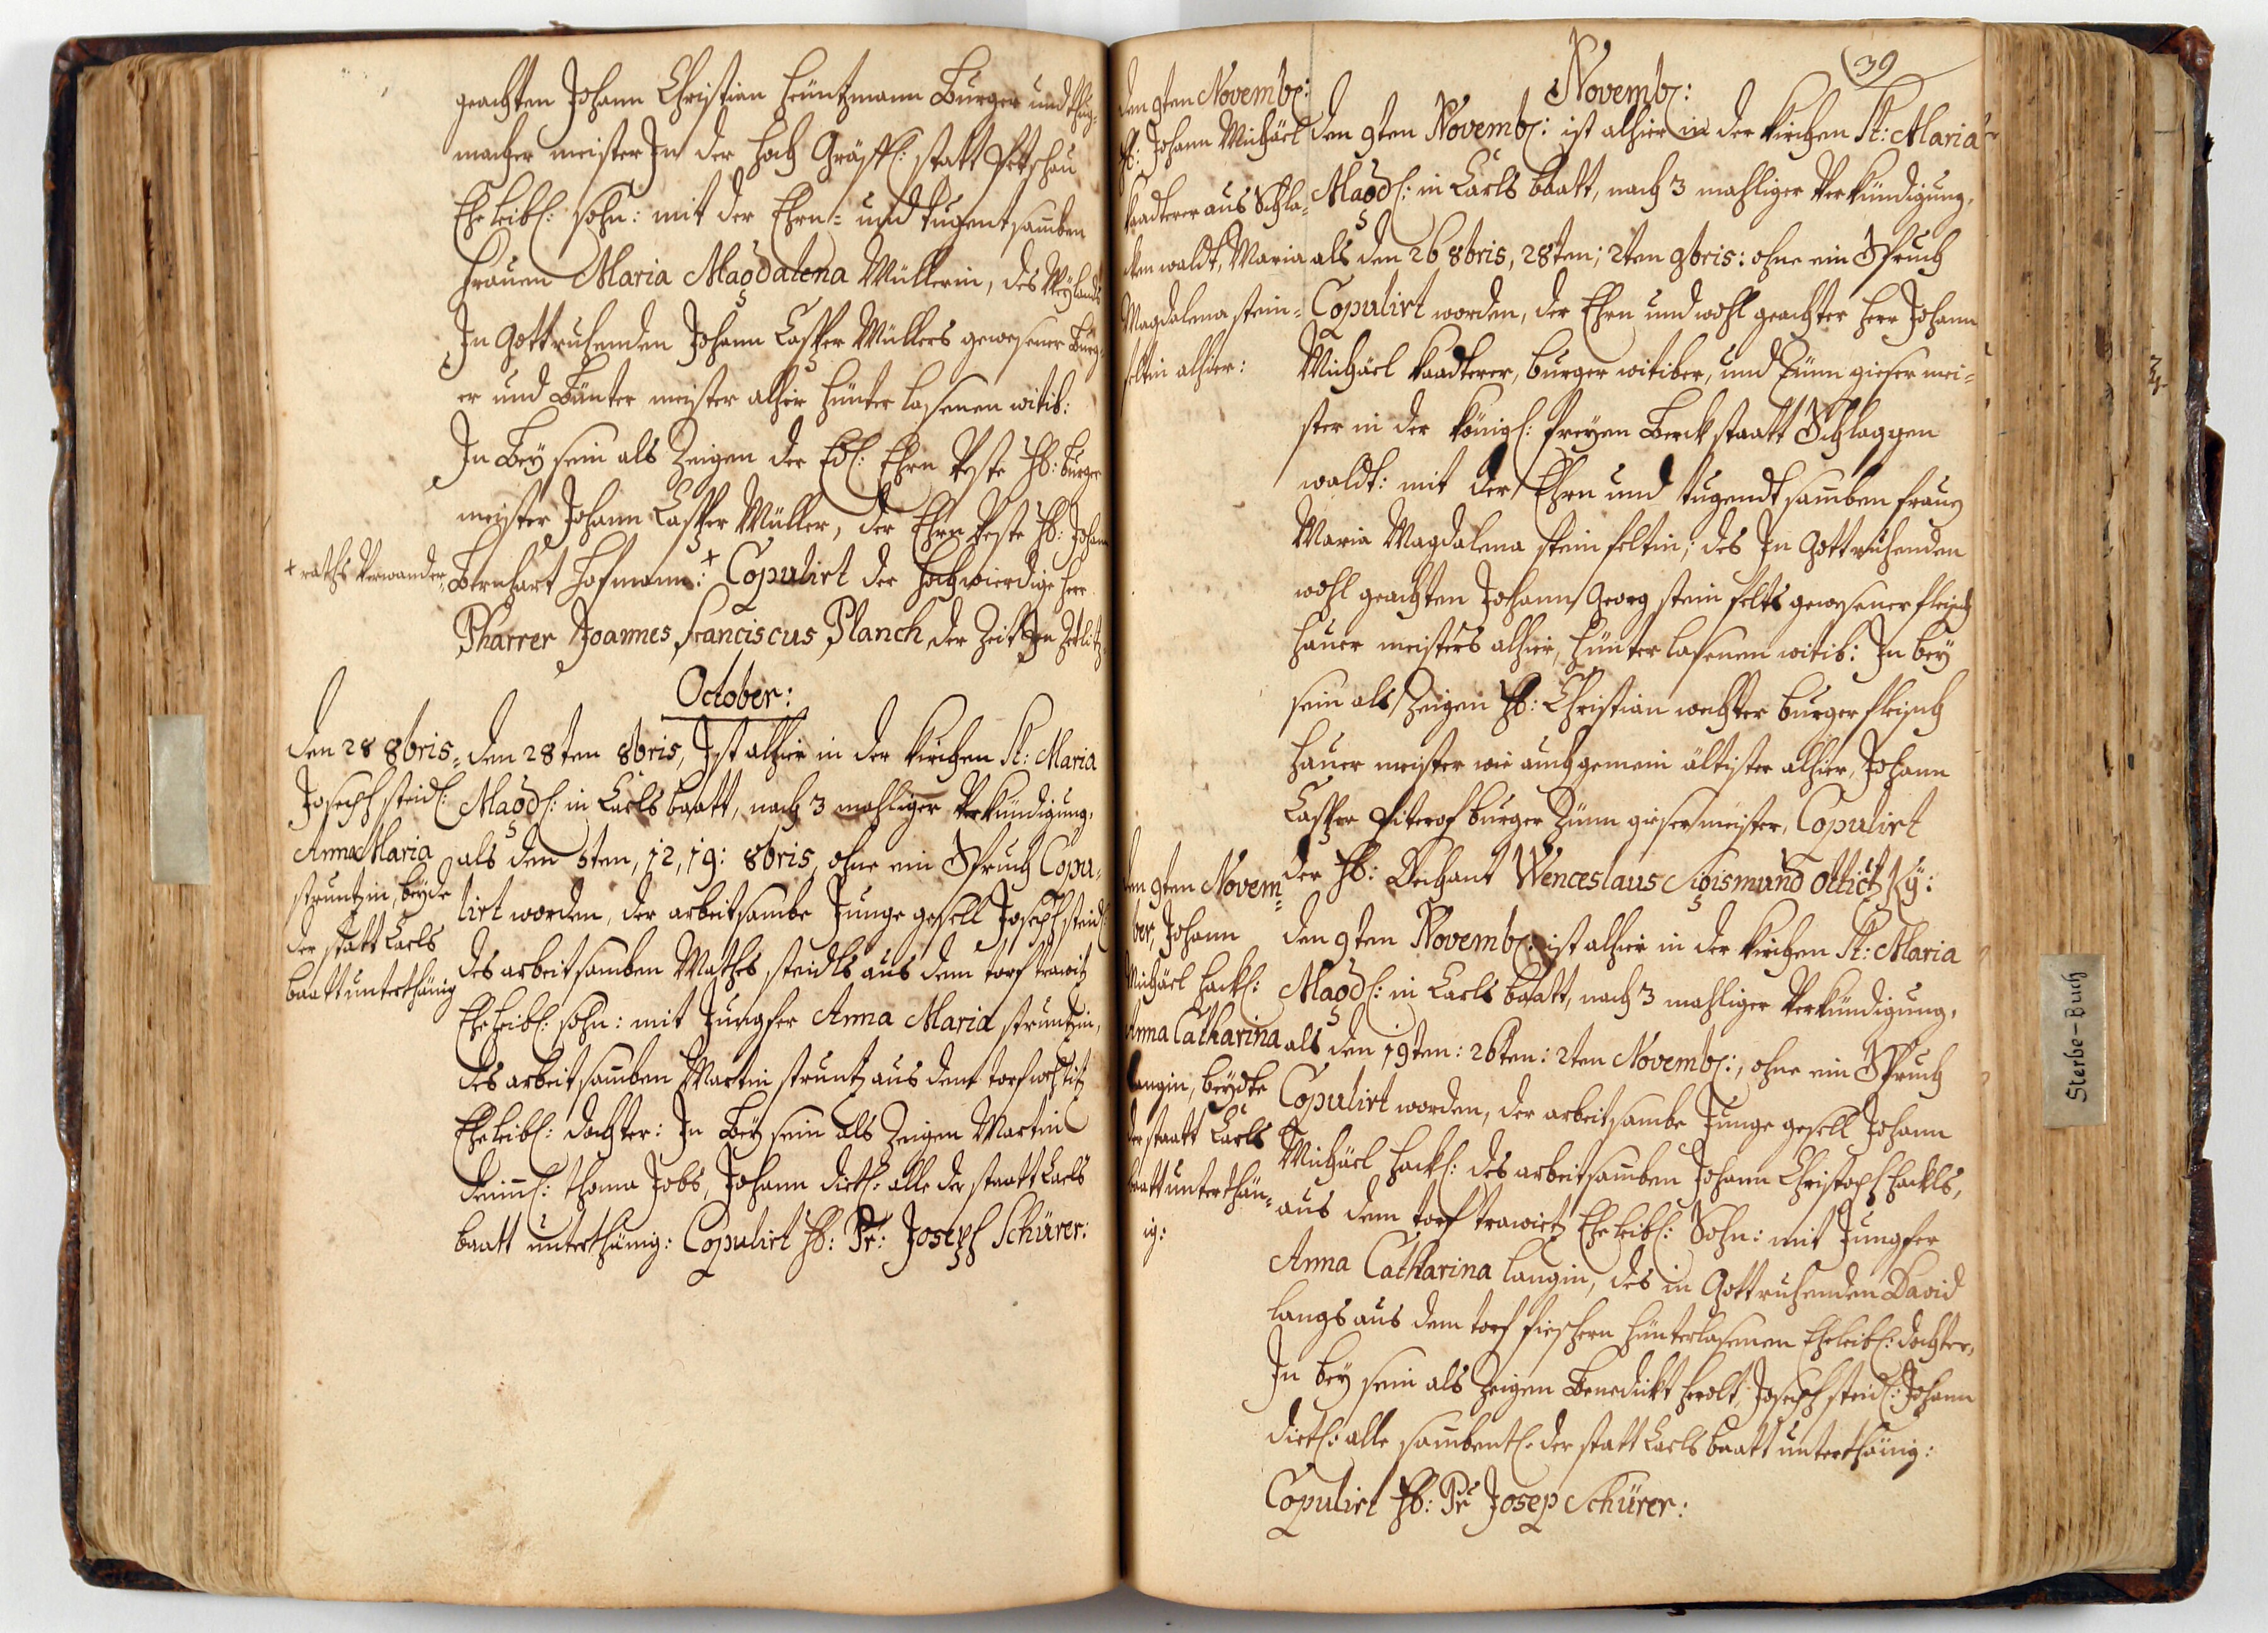 geachten Johann Christian Heüntzmann Burger und
macher meister In der hoch Gräffl: statt Petschau
Ehe leibl: sohn: mit der Ehrn= und tugentsamben
frauen Maria Magdalena Müllerin, des Weylandt
In Gott ruhenden Johann Casper Müllers gewesener Burg-
er und Bünter meister alhier hünter lasenen witib:
In Beÿ sein als Zeigen der Edl: Ehrn Veste H: burger
meister Johann Casper Müller, der Ehrn Veste H: Johann
+ raths verwander
Bernhart Hofmann: + Copulirt der Hochwierdige herr
Pharrer Joannes franciscus Planch, der Zeit In Zetlitz
October:
den 28 8bris
Joseph steidl:
Anna Maria
struntzin, beÿde
der statt Carls
baatt unterthänig
den 28ten 8bris, Ist alhier in der Kirchen St: Maria
Magdl: in Carls baatt, nach 3 mahliger Verkündigung,
als den 6ten, 12, 19: 8bris, ohne ein Spruch Copu-
lirt worden, der arbeitsambe Junge gesell Joseph steidl
des arbeitsamben Mathes steidls aus dem torf trawitz
Ehe leibl: sohn: mit Jungfer Anna Maria struntzin,
des arbeitsamben Martin struntz aus dem torf
Ehe leibl: dochter: In Beÿ sein als Zeigen Martin
thoma Jobs, Johann dietl: alle der staatt Carls
baatt unterthänig: Copulirt H: Pr: Joseph Schürer:
39
Novemb:
den 9ten Novemb:
H: Johann Michäel
Kadterer aus Schla=
cken waldt, Maria
Magdalena stein=
feltin alhier:
den 9ten Novemb: ist alhier in der Kirchen St: Maria
Magdl: in Carls baatt, nach 3 mahliger Verkündigung,
als den 26 8bris, 28ten; 2ten 9bris: ohne ein Spruch
Copulirt worden, der Ehrn und wohl geachter herr Johann
Michäel Kaadterer, burger witiber, und Zünn gieser mei=
ster in der Königl: freÿen Berck staatt Schlaggen
waldt: mit der Ehrn und tugendt samben frau
Maria Magdalena stein feltin; des In Gott ruhenden
wohl geachten Johann Georg stein felts gewesener fleisch
hauer meisters alhier, hünter lasenen witib: In beÿ
sein als Zeigen H: Christian wechter burger fleisch
hauer meister wie auch gemein ältister alhier, Johann
Casper Piterof burger Zünn gieser meister, Copulirt
der H: Dechant Wenceslaus Sigismund Ottict Kÿ:
den 9ten Novem=
ber, Johann
Michäel Hackl:
Anna Catharina
langin, beÿdte
der staatt Carls
baatt unterthän=
ig:
den 9ten Novemb: ist alhier in der Kirchen St: Maria
Magdl: in Carls baatt, nach 3 mahliger Verkündigung,
als den 19ten: 26ten: 2ten Novemb:, ohne ein Spruch
Copulirt worden, der arbeitsambe Junge gesell Johann
Michäel Hackl: des arbeitsamben Johann Christoph Hackls,
aus dem torf trawitz Ehe leibl: Sohn: mit Jungfer
Anna Catharina langin, des in Gott ruhenden David
langs aus dem torf fischern hünterlasenen Eheleibl: dochter,
In beÿ sein als Zeigen Benedickt Herolt, Joseph steidl: Johann
dietl: alle sambentl: der statt Carls baatt unterthänig:
Copulirt H: Pr Josep Schürer:
Sterbe-Buch